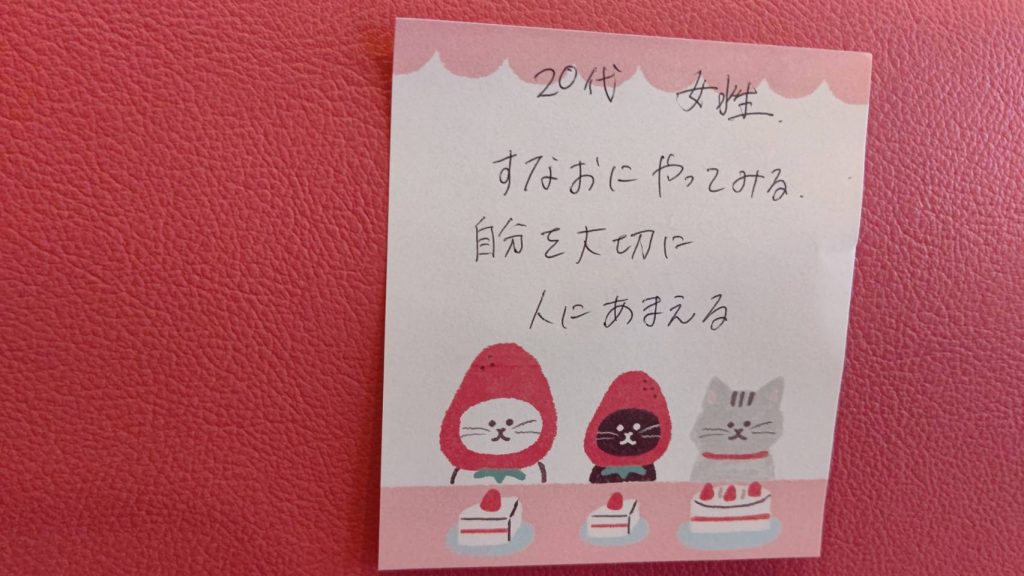 20代 女性.
すなおにやってみる.
自分を大切に
人にあまえる